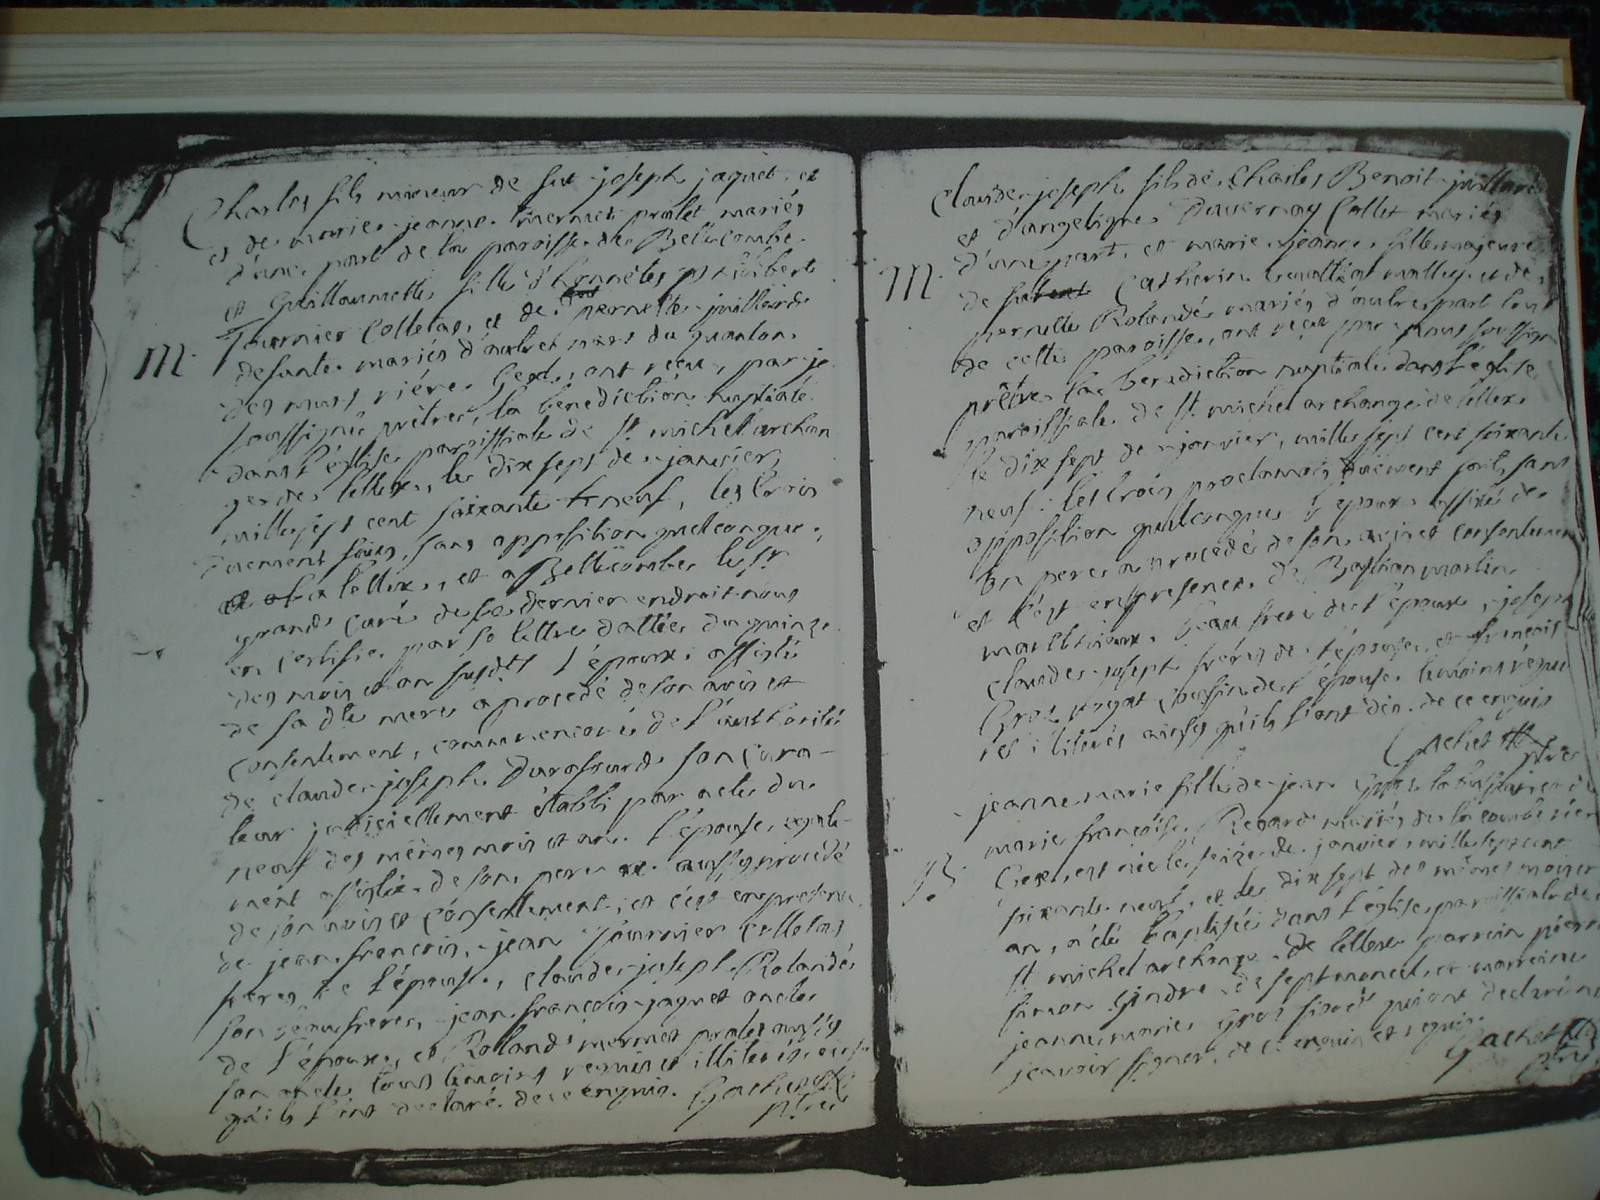 Charles fils mineur de fut joseph jaquet, et
et de marie jeanne mermet pralet mariés
d'une part de la paroisse de Bellecombe
et Guillaumette fille d'honnêtes philibert
Tournier Colletas, et de pernette juillard
defunte mariés d'autre part du quanton
des murs riére Gex, ont reçu, par je
soussigné prêtre, la benediction nuptiale
dans l'église paroissiale de St michel archan
ge de lellex, le dix sept de janvier
mille sept cent soixante et neuf, les trois
duement faites, sans opposition quelconque,
a lellex, et a Bellecombe le Sr
grand curé de ce dernier endroit nous
en certifie par sa lettre dattée du quinze
des mois et an susdts l'époux assisté
de sa dte mere a procedé de son avis et
consentement, comme encore de l'authorité
de claude joseph son cura-
teur judiciellement établi par acte du
neuf des mêmes mois et an. l'épouse, egale-
ment assistée de son pere a aussy procédé
de son avis et consentement, et c'est en presence
de jean francois, jean tournier colletas
freres de l'épouse, claude joseph Rolandés
son beau frere, jean francois jaquet oncle
de l'époux, et Roland mermet pralet aussy
son oncle tous temoins requis et illiterés ainsi
qu'ils l'ont declaré de ce enquis. Gachet
ptre
M.
Claude joseph fils de Charles Benoit juillard
et d'angelique Duvernay Collet mariés
d'une part, et marie jeanne fille majeure
de fut Catherin mathey et de
pernette Rolandés mariés d'autre part tous
de cette paroisse, ont reçu par nous soussigné
prêtre la benediction nuptiale dans l'église
paroissiale de St michel archange de lellex
le dix sept de janvier, mille sept cent soixante
neuf. les trois proclamois duement faits sans
opposition quelconque l'époux assisté de
son pere a procedé de son avis et consentement
et c'est en presence de Bastian martin
beau frere de l'époux, joseph
claude joseph freres de l'épouse, et francois
Gros de l'épouse temoins requis
et illiterés ainsy qu'ils l'ont de ce enquis
Gachet ptre
M.
jeanne marie fille de jean Gros
marie françoise Regard mariés de la combe riére
Gex, est née le seize de janvier mille sept cent
soixante neuf, et le dix sept des mêmes mois et
an, a été baptisée dans l'église paroissiale de
St michel archange de lellex parrain pierre
simon Gindre de septmoncel, et marraine
jeanne marie Gros qui ont declaré ne
scavoir signer, de ce enquis et requis.
Gachet
ptre
B.